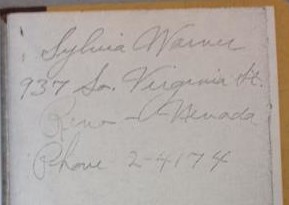 Sylvia Warner
937 So. Virginia St.
Reno - Nevada
Phone 2-4174